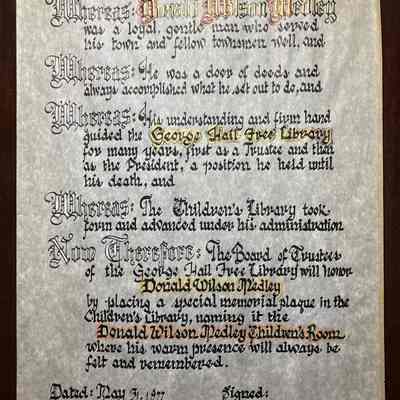 Whereas: Donald Wilson Medley
was a loyal, gentle man who served
his town and fellow townsmen well, and
Whereas: He was a doer of deeds and
always accomplished what he set out to do, and
Whereas: His understanding and firm hand
guided the George Hail Free Library
for many years, first as a Trustee and then
as the President, a position he held until
his death, and
Whereas: The Children's Library took
form and advanced under his administration
Now Therefore: The Board of Trustees
of the George Hail Free Library will honor
Donald Wilson Medley
by placing a special memorial plaque in the
Children's Library, naming it the
Donald Wilson Medley Children's Room
where his warm presence will always be
felt and remembered.
Dated: May 31, 1977 Signed: